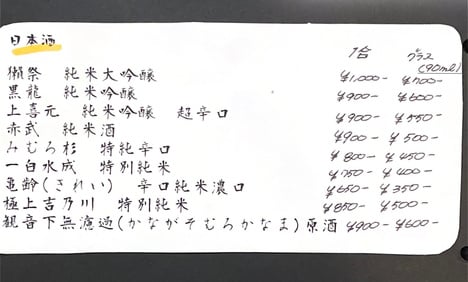 日本酒 1合 グラス(90ml)
獺祭 純米大吟醸 ¥1,000- ¥700-
黒龍 純米吟醸 ¥900- ¥600-
上喜元 純米吟醸 超辛口 ¥900- ¥550-
赤武 純米酒 ¥900- ¥500-
みむろ杉 特純辛口 ¥800- ¥450-
一白水成 特別純米 ¥750- ¥400-
亀齢(きれい) 辛口純米濃口 ¥650- ¥350-
極上吉乃川 特別純米 ¥850- ¥500-
観音下無濾過(かながそむろかなま)原酒 ¥900- ¥600-